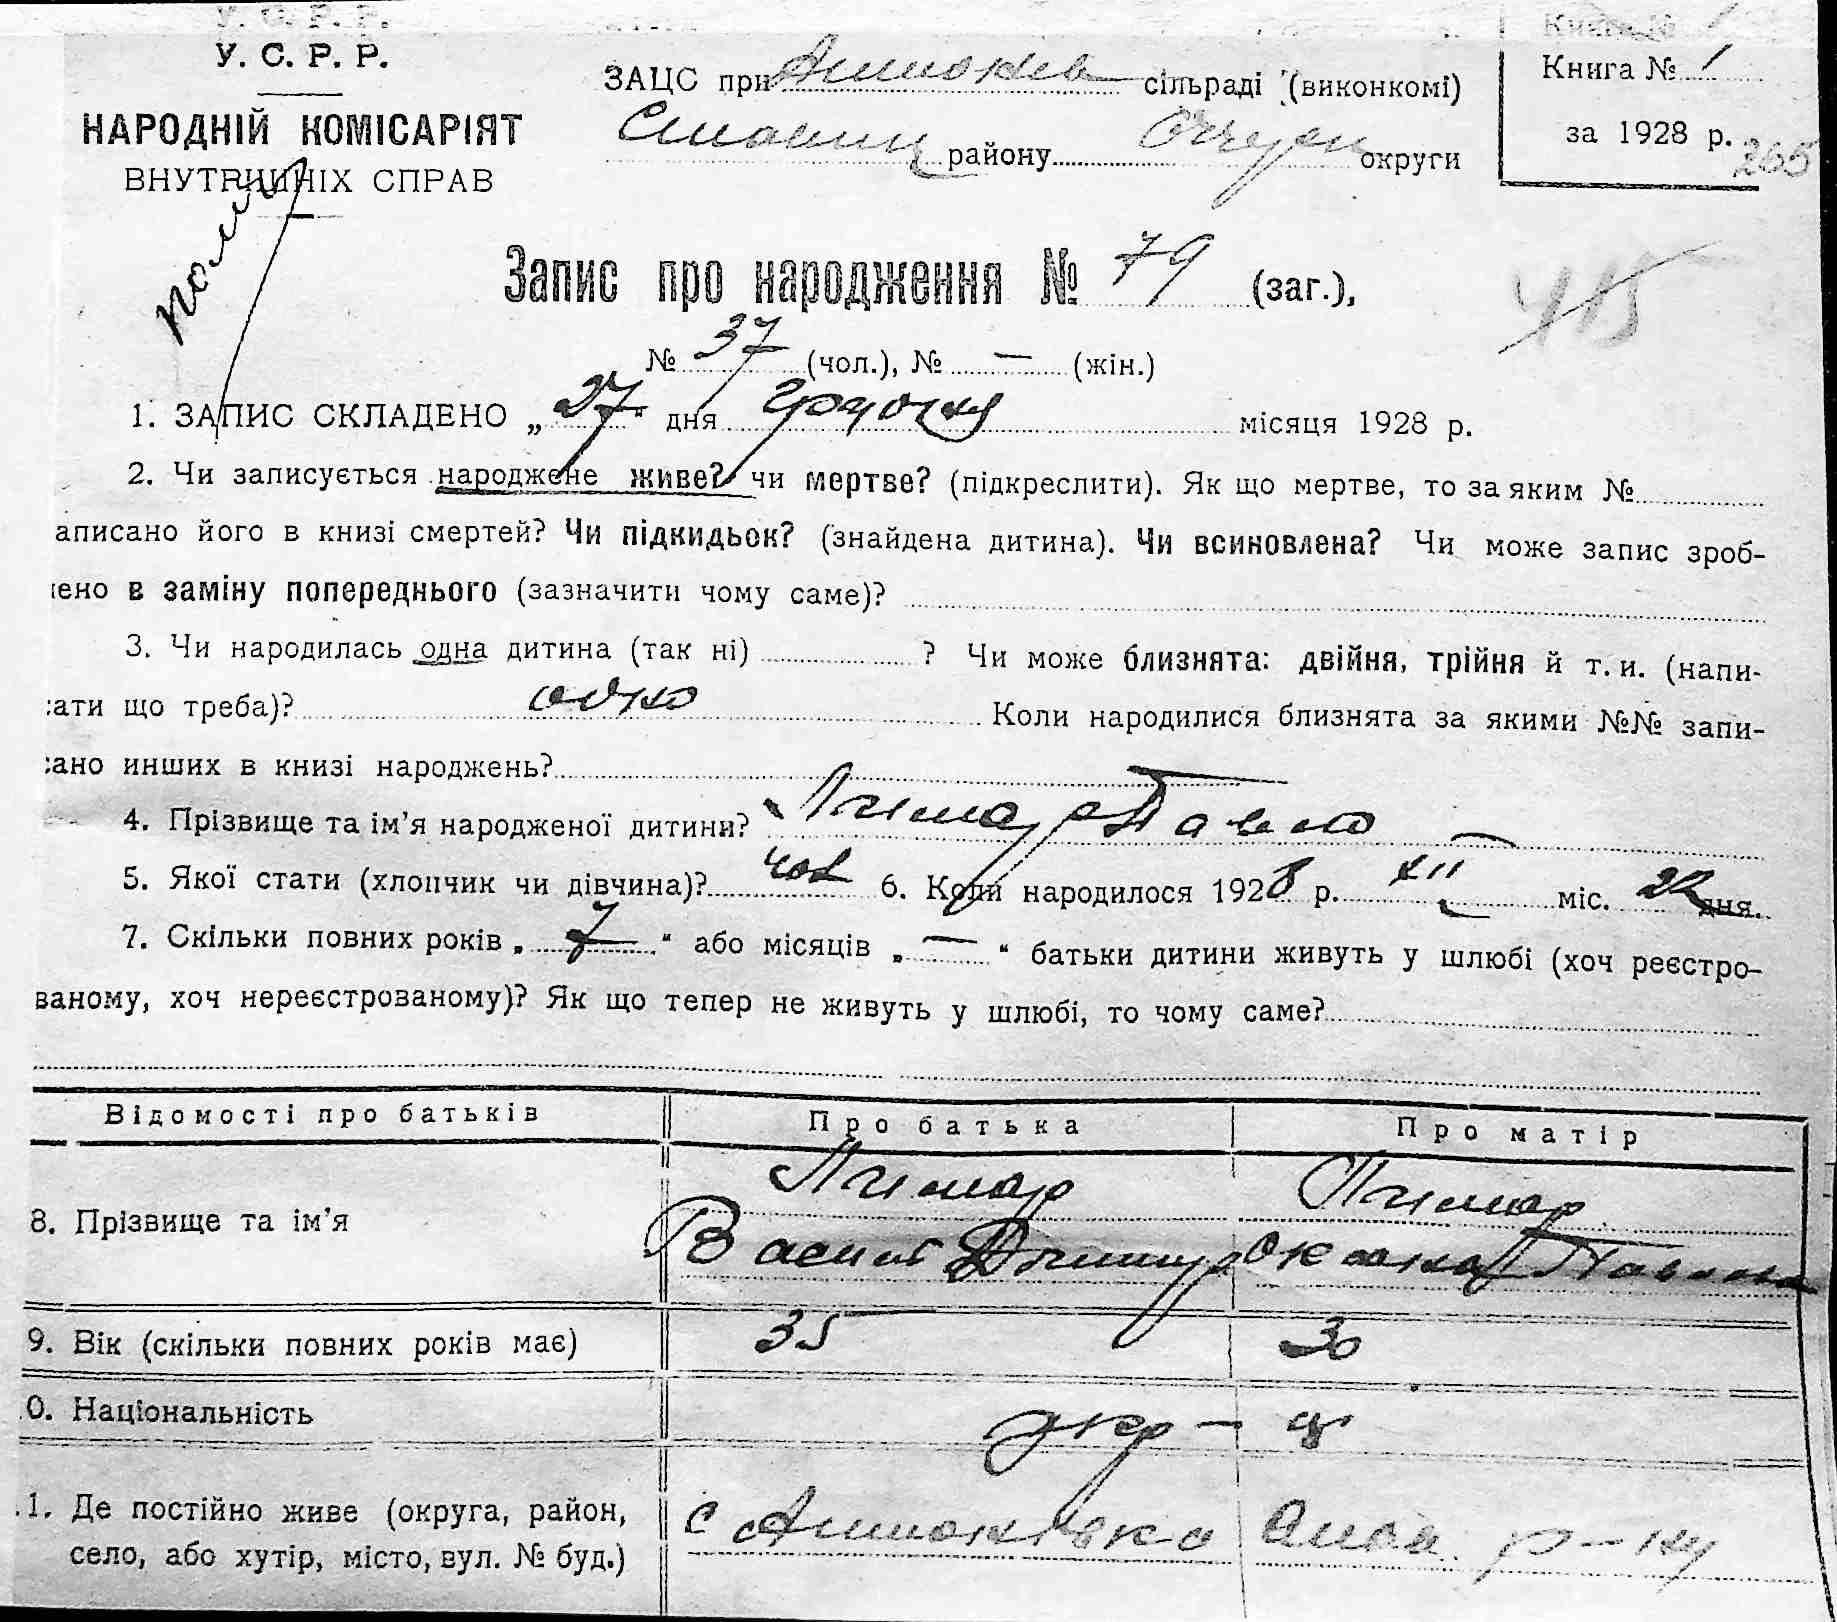 У. С. Р. Р.
НАРОДНІЙ КОМІСАРІЯТ
ВНУТРІШНІХ СПРАВ
ЗАЦС при сільраді (виконкомі)
району округи
Книга № 1
за 1928 р.
265
Запис про народження № 79 (заг.),
415
№ 37 (чол.), № — (жін.)
1. ЗАПИС СКЛАДЕНО „27" дня Грудня місяця 1928 р.
2. Чи записується народжене живе? чи мертве? (підкреслити). Як що мертве, то за яким №
аписано його в книзі смертей? Чи підкидьок? (знайдена дитина). Чи всиновлена? Чи може запис зроб-
ено в заміну попереднього (зазначити чому саме)?
3. Чи народилась одна дитина (так ні) ? Чи може близнята: двійня, трійня й т. и. (напи-
ати що треба)? одно Коли народилися близнята за якими №№ запи-
ано инших в книзі народжень? —
4. Прізвище та ім'я народженої дитини? Лимар Павло
5. Якої статі (хлопчик чи дівчина)? чол 6. Коли народилося 1928 р. XII міс. 22 дня.
7. Скільки повних років „7" або місяців „—" батьки дитини живуть у шлюбі (хоч реєстро-
ваному, хоч нереєстрованому)? Як що тепер не живуть у шлюбі, то чому саме?
Відомості про батьків Про батька Про матір
8. Прізвище та ім'я Лимар Лимар
Васил Дмитр Оксана Павлова
9. Вік (скільки повних років має) 35 30
0. Національність укр —
1. Де постійно живе (округа, район,
село, або хутір, місто, вул. № буд.)
с р-ну